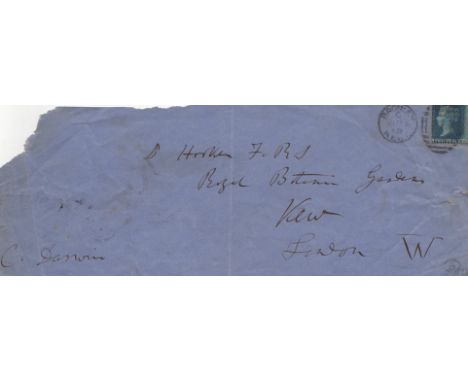 Dr Hooker F.R.S
Royal Botanic Gardens
Kew
London W
C. Darwin